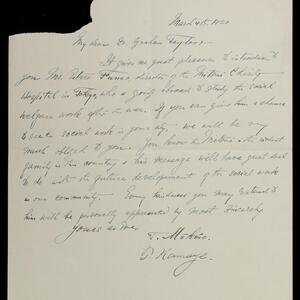 March 4th. 1920.
My dear Dr. Graham Taylor:
It gives me great pleasure to introduce to
you Mr. Funao, director of the Mitsui Charity
Hospital in Tokyo, who is going abroad to study the social
welfare work after the war. If you can give him a chance
to see social work in your city, we will be very
much obliged to you. You know the Mitsui is the richest
family in this country & his message will have great deal
to do with the future development of the social work
in our community. Every kindness you may extend to
him will be personally appreciated by most sincerely
yours as me,
T.